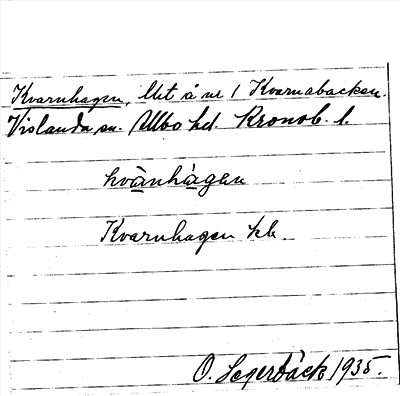 Kvarnhagen, lht å nr 1 Kvarnabacken.
Vislanda sn. Allbo hd. Kronob. l.
kvànhàgen
Kvarnhagen kb
O. Segerbäck 1935.